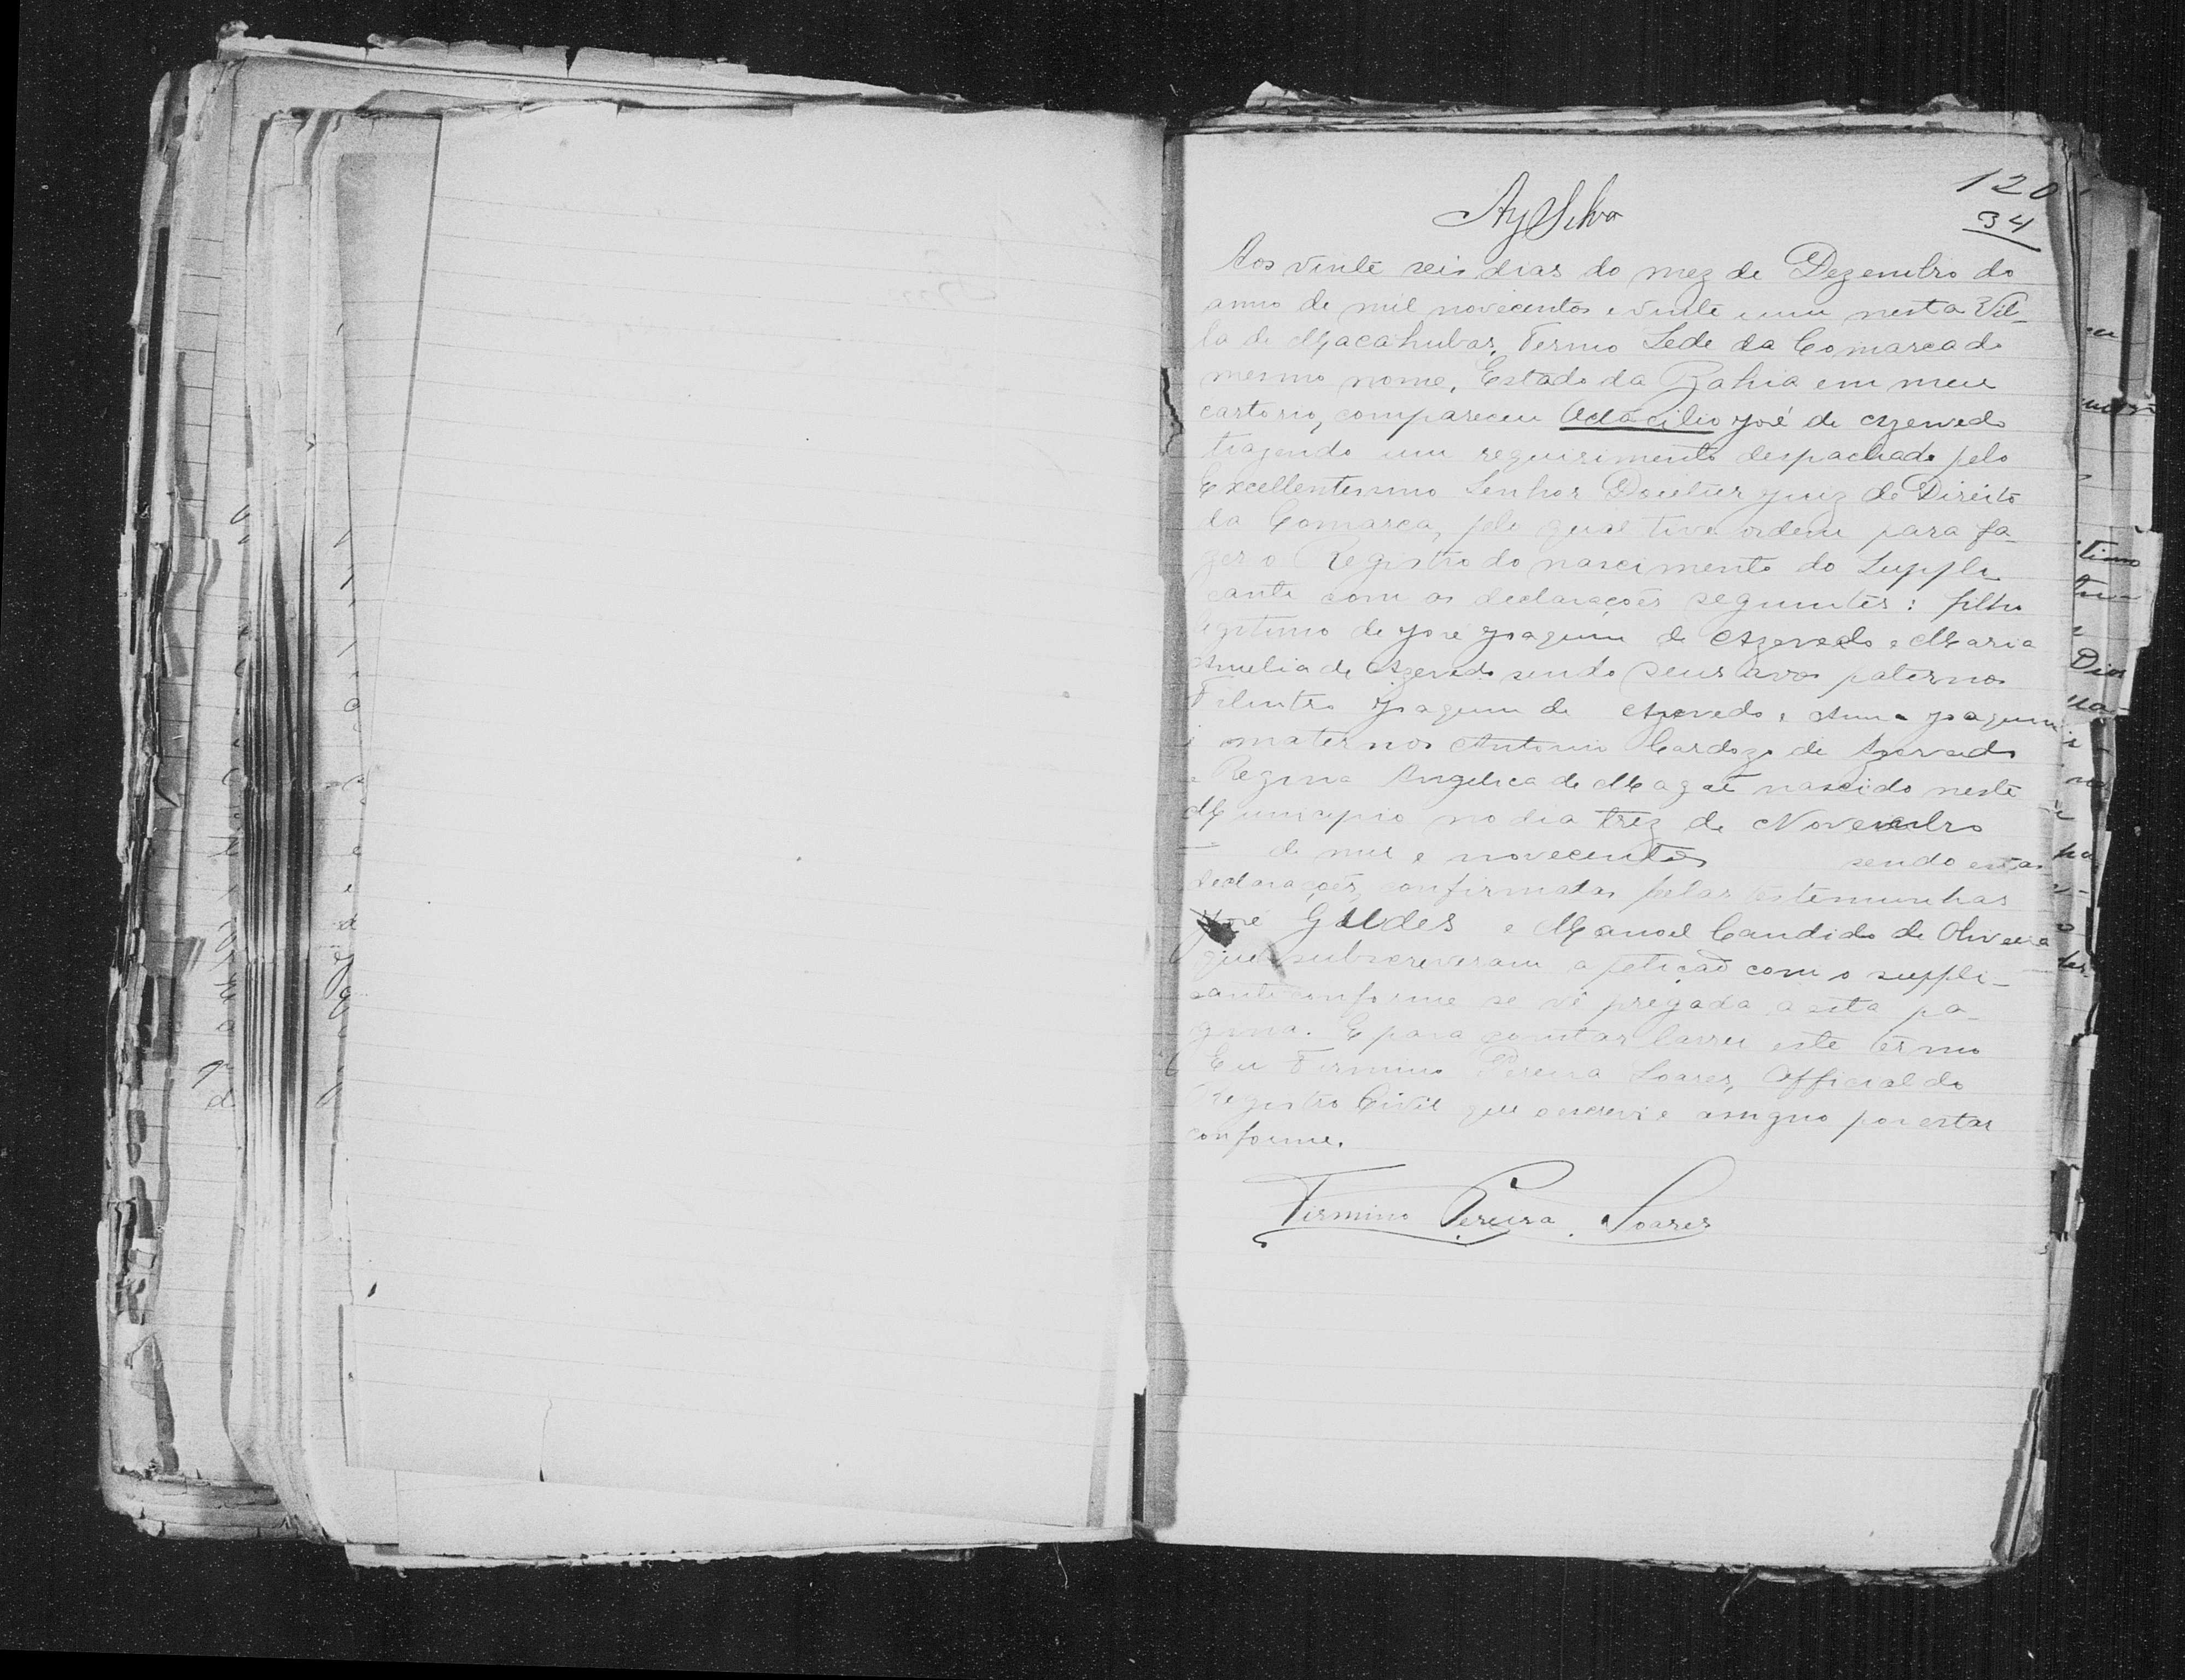 120
34
AySilva
Aos vinte seis dias do mez de Dezembro do
anno de mil novecentos e vinte e um nesta Vil-
la de Macahubas, Termo Sede da Comarca do
mesmo nome, Estado da Bahia em meu
cartorio, compareceu Adacilio José de Azevedo
trazendo um requerimento despachado pelo
Excellentissimo Senhor Doutor Juiz de Direito
da Comarca, pelo qual tive ordem para fa-
zer o Registro do nascimento do Suppli
cante com as declarações seguintes: filho
legitimo de José Joaquim de Azevedo e Maria
Amelia de Azevedo sendo seus avos paternos
Joaquim de Azevedo e Anna Joaquina
e maternos Antonio Cardozo de Azevedo
e Regina Angelica de nascido neste
Municipio no dia trez de Novembro
de mil e novecentos sendo estas
declarações, confirmadas pelas testemunhas
José Guedes e Manoel Candido de Oliveira
que subscreveram a petição com o suppli-
cante conforme se vê pregada a esta pa-
gina. E para constar lavrei este termo
Eu Firmino Pereira Soares, Official do
Registro Civil que escrevi e assigno por estar
conforme.
Firmino Pereira Soares